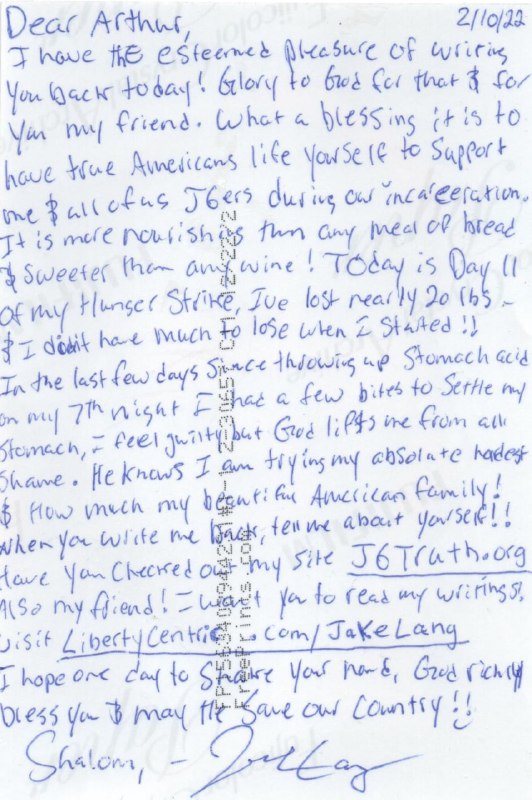 Dear Arthur, 2/10/22
I have the esteemed pleasure of writing
you back today! Glory to God for that & for
you my friend. What a blessing it is to
have true Americans like yourself to support
me & all of us J6ers during our incarceration.
It is more nourishing than any meal of bread
& sweeter than any wine! Today is Day 11
of my Hunger Strike, Ive lost nearly 20 lbs -
& I didn't have much to lose when I started!!
In the last few days since throwing up stomach acid
on my 7th night I had a few bites to settle my
stomach, I feel guilty but God lifts me from all
shame. He knows I am trying my absolute hardest
& How much my beautiful American family!
When you write me back, tell me about yourself!!
Have you checked out my site J6Truth.org
Also my friend! I want you to read my writings,
visit LibertyCentric.com/JakeLang
I hope one day to shake your hand, God richly
bless you & may He save our country!!
Shalom, - Jake Lang
freeprints.com